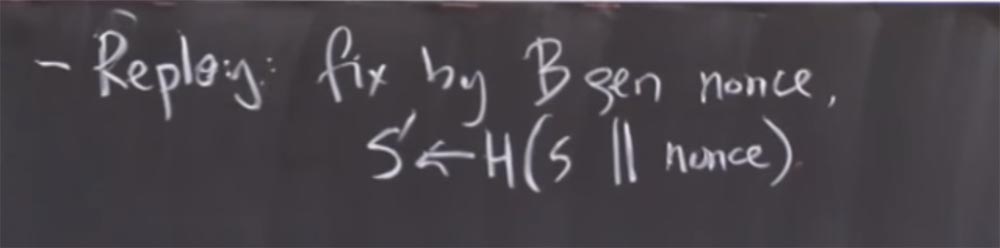 - Replay: fix by B gen nonce,
S' ← H(S || nonce)